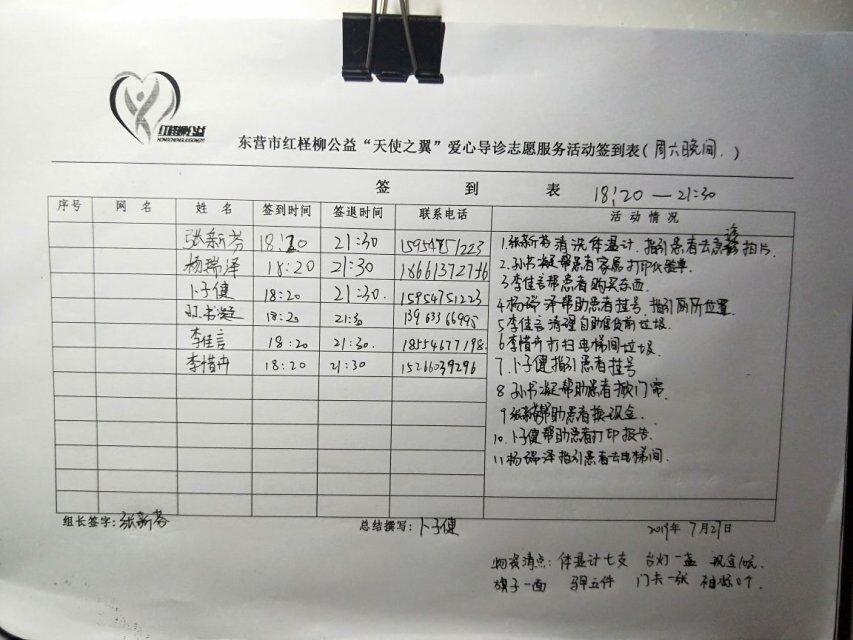 红柽柳公益
HONGCHENGLIUGONGYI
东营市红柽柳公益“天使之翼”爱心导诊志愿服务活动签到表(周六晚间.)
签 到 表 18:20 — 21:30
序号 网 名 姓 名 签到时间 签退时间 联系电话 活 动 情 况
张新芬 18:20 21:30 15954751223
杨瑞泽 18:20 21:30 18661372776
卜子健 18:20 21:30. 15954751223
孙书凝 18:20 21:30 13963366995
李佳言 18:20 21:30. 18554677198.
李惜冉 18:20 21:30 15266039296
1.张新芬清洗体温计.指引患者去急诊拍片.
2.孙书凝帮患者家属打印化验单.
3.李佳言帮患者购买东西.
4.杨瑞泽帮助患者挂号,指引厕所位置.
5.李佳言清理自助售货前垃圾.
6.李惜冉打扫电梯间垃圾.
7.卜子健指引患者挂号
8.孙书凝帮助患者掀门帘
9.张新芬帮助患者换现金.
10.卜子健帮助患者打印报告.
11.杨瑞泽指引患者去电梯间.
组长签字:张新芬 总结撰写:卜子健 2019年 7月27日
物资清点:体温计七支 台灯一盏 现金
旗子一面 马甲五件 门卡一张 袖标0个.